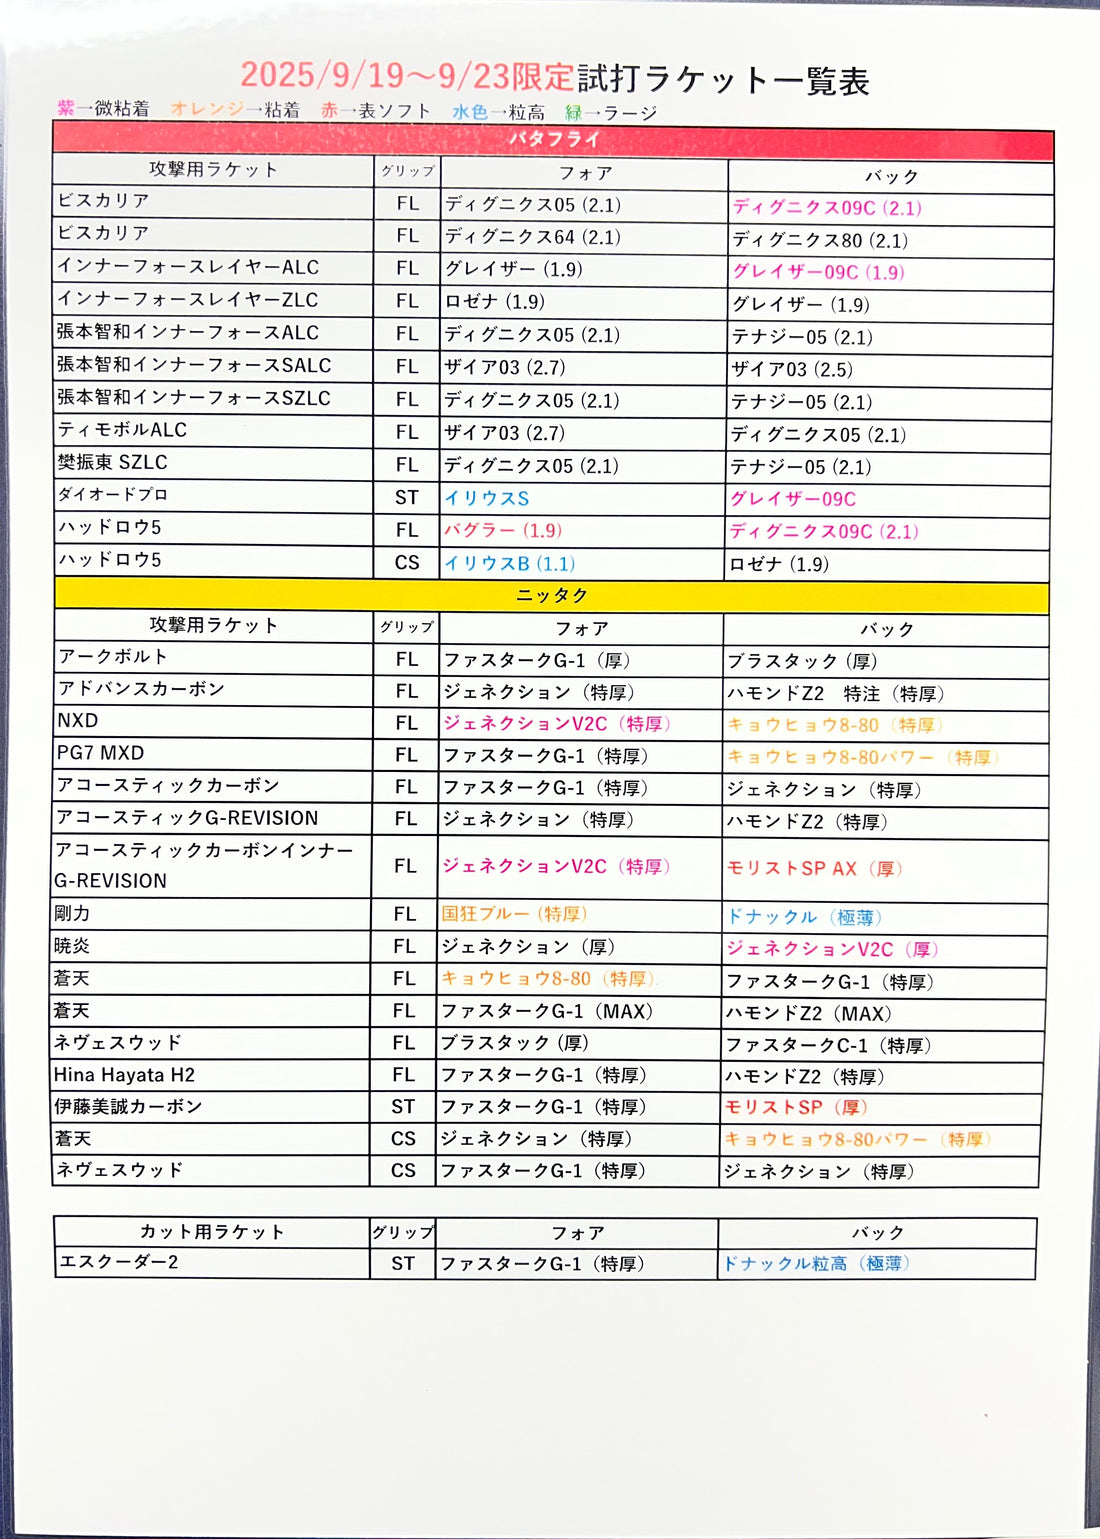 2025/9/19～9/23限定試打ラケット一覧表
紫→微粘着 オレンジ→粘着 赤→表ソフト 水色→粒高 緑→ラージ
バタフライ
攻撃用ラケット グリップ フォア バック
ビスカリア FL ディグニクス05 (2.1) ディグニクス09C (2.1)
ビスカリア FL ディグニクス64 (2.1) ディグニクス80 (2.1)
インナーフォースレイヤーALC FL グレイザー (1.9) グレイザー09C (1.9)
インナーフォースレイヤーZLC FL ロゼナ (1.9) グレイザー (1.9)
張本智和インナーフォースALC FL ディグニクス05 (2.1) テナジー05 (2.1)
張本智和インナーフォースSALC FL ザイア03 (2.7) ザイア03 (2.5)
張本智和インナーフォースSZLC FL ディグニクス05 (2.1) テナジー05 (2.1)
ティモボルALC FL ザイア03 (2.7) ディグニクス05 (2.1)
樊振東 SZLC FL ディグニクス05 (2.1) テナジー05 (2.1)
ダイオードプロ ST イリウスS グレイザー09C
ハッドロウ5 FL バグラー (1.9) ディグニクス09C (2.1)
ハッドロウ5 CS イリウスB (1.1) ロゼナ (1.9)
ニッタク
攻撃用ラケット グリップ フォア バック
アークボルト FL ファスタークG-1（厚） ブラスタック (厚)
アドバンスカーボン FL ジェネクション（特厚） ハモンドZ2 特注（特厚）
NXD FL ジェネクションV2C（特厚） キョウヒョウ8-80（特厚）
PG7 MXD FL ファスタークG-1（特厚） キョウヒョウ8-80パワー（特厚）
アコースティックカーボン FL ファスタークG-1（特厚） ジェネクション（特厚）
アコースティックG-REVISION FL ジェネクション（特厚） ハモンドZ2（特厚）
アコースティックカーボンインナー
G-REVISION FL ジェネクションV2C（特厚） モリストSP AX（厚）
剛力 FL 国狂ブルー (特厚) ドナックル（極薄）
暁炎 FL ジェネクション（厚） ジェネクションV2C（厚）
蒼天 FL キョウヒョウ8-80（特厚） ファスタークG-1（特厚）
蒼天 FL ファスタークG-1（MAX） ハモンドZ2（MAX）
ネヴェスウッド FL ブラスタック (厚) ファスタークC-1（特厚）
Hina Hayata H2 FL ファスタークG-1（特厚） ハモンドZ2（特厚）
伊藤美誠カーボン ST ファスタークG-1（特厚） モリストSP（厚）
蒼天 CS ジェネクション（特厚） キョウヒョウ8-80パワー（特厚）
ネヴェスウッド CS ファスタークG-1（特厚） ジェネクション（特厚）
カット用ラケット グリップ フォア バック
エスクーダー2 ST ファスタークG-1（特厚） ドナックル粒高（極薄）